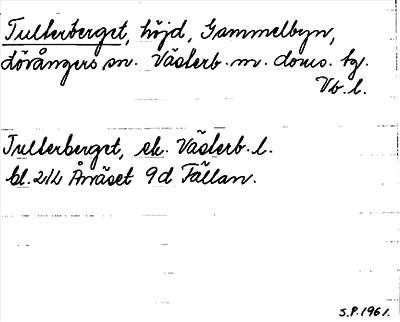 Tullerberget, höjd, Gammelbyn,
Lövångers sn. Västerb. m. doms. tg.
Vb. l.
Tullerberget, ek. Västerb. l.
bl. 214 Ånäset 9d Fällan.
S.P. 1961.